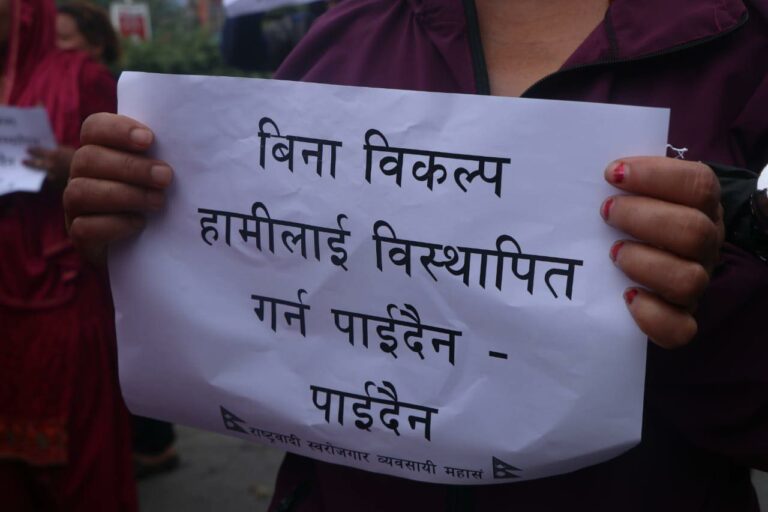 बिना विकल्प
हामीलाई विस्थापित
गर्न पाईदैन -
पाईदैन
राष्ट्रवादी स्वरोजगार व्यवसायी महासं